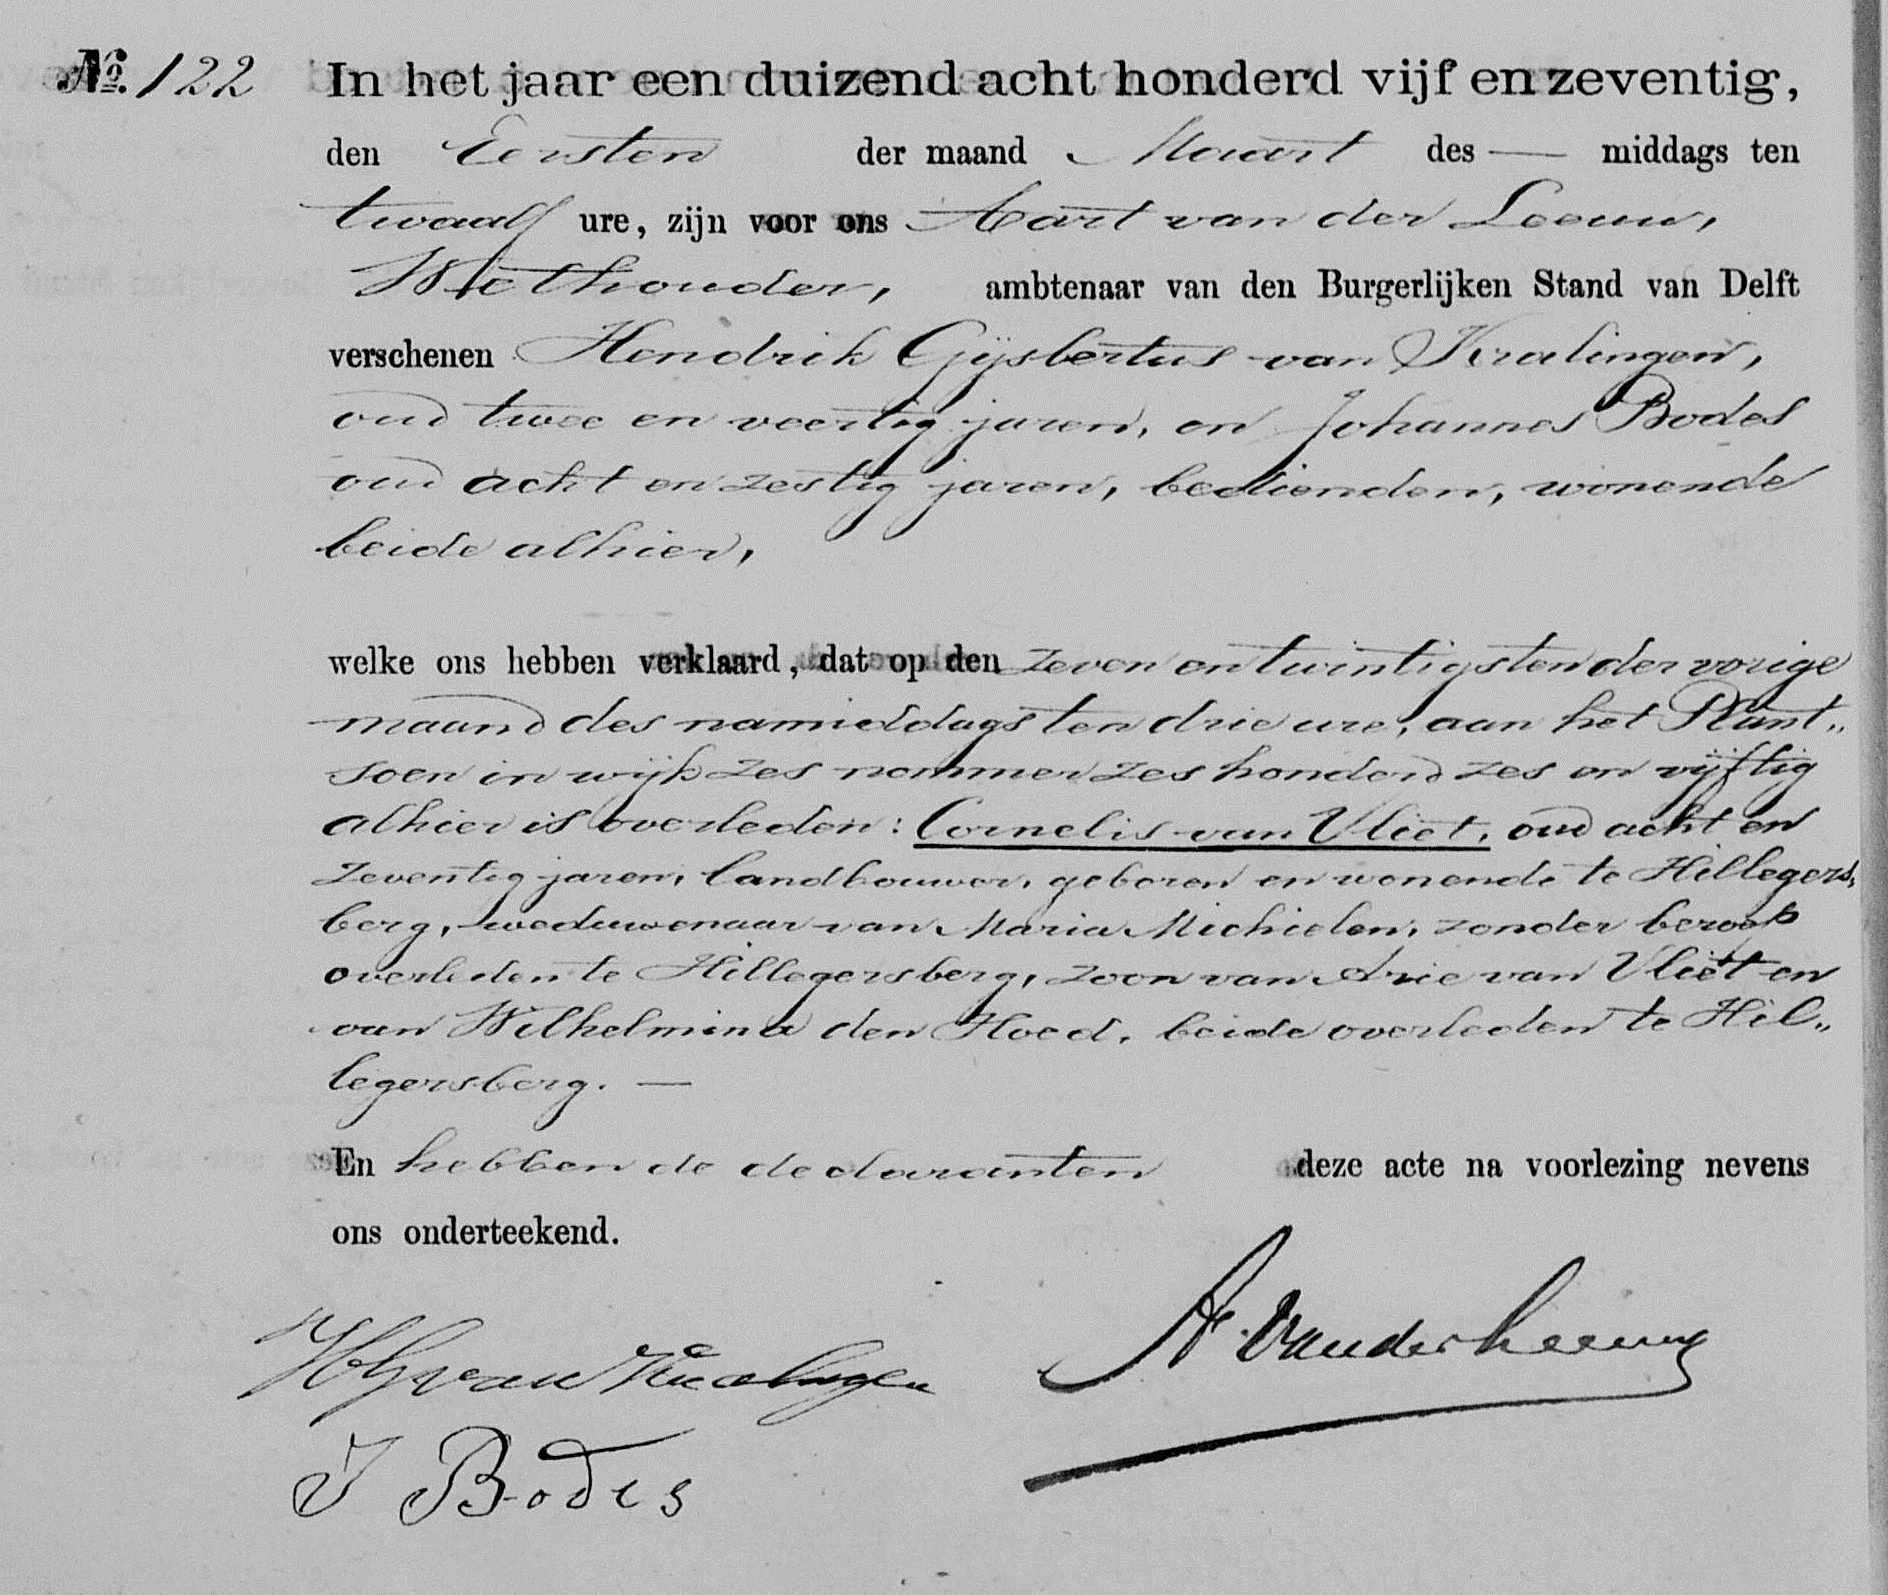 No. 122 In het jaar een duizend acht honderd vijf en zeventig,
den Eersten der maand Maart des — middags ten
twaalf ure, zijn voor ons Aart van der Leeuw,
Wethouder, ambtenaar van den Burgerlijken Stand van Delft
verschenen Hendrik Gijsbertus van Kralingen,
oud twee en veertig jaren, en Johannes Bodes
oud acht en zestig jaren, bedienden, wonende
beide alhier,
welke ons hebben verklaard, dat op den zeven en twintigsten der vorige
maand des namiddags ten drie ure, aan het Plant„
soen in wijk zes nommer zes honderd zes en vijftig
alhier is overleden: Cornelis van Vliet, oud acht en
zeventig jaren, landbouwer, geboren en wonende te Hillegers„
berg, weduwenaar van Maria Michielen, zonder beroep
overleden te Hillegersberg, zoon van Arie van Vliet en
van Wilhelmina den Hoed, beide overleden te Hil„
legersberg. —
En hebben de declaranten deze acte na voorlezing nevens
ons onderteekend.
HG van Kralingen
A. van der Leeuw
J Bodes